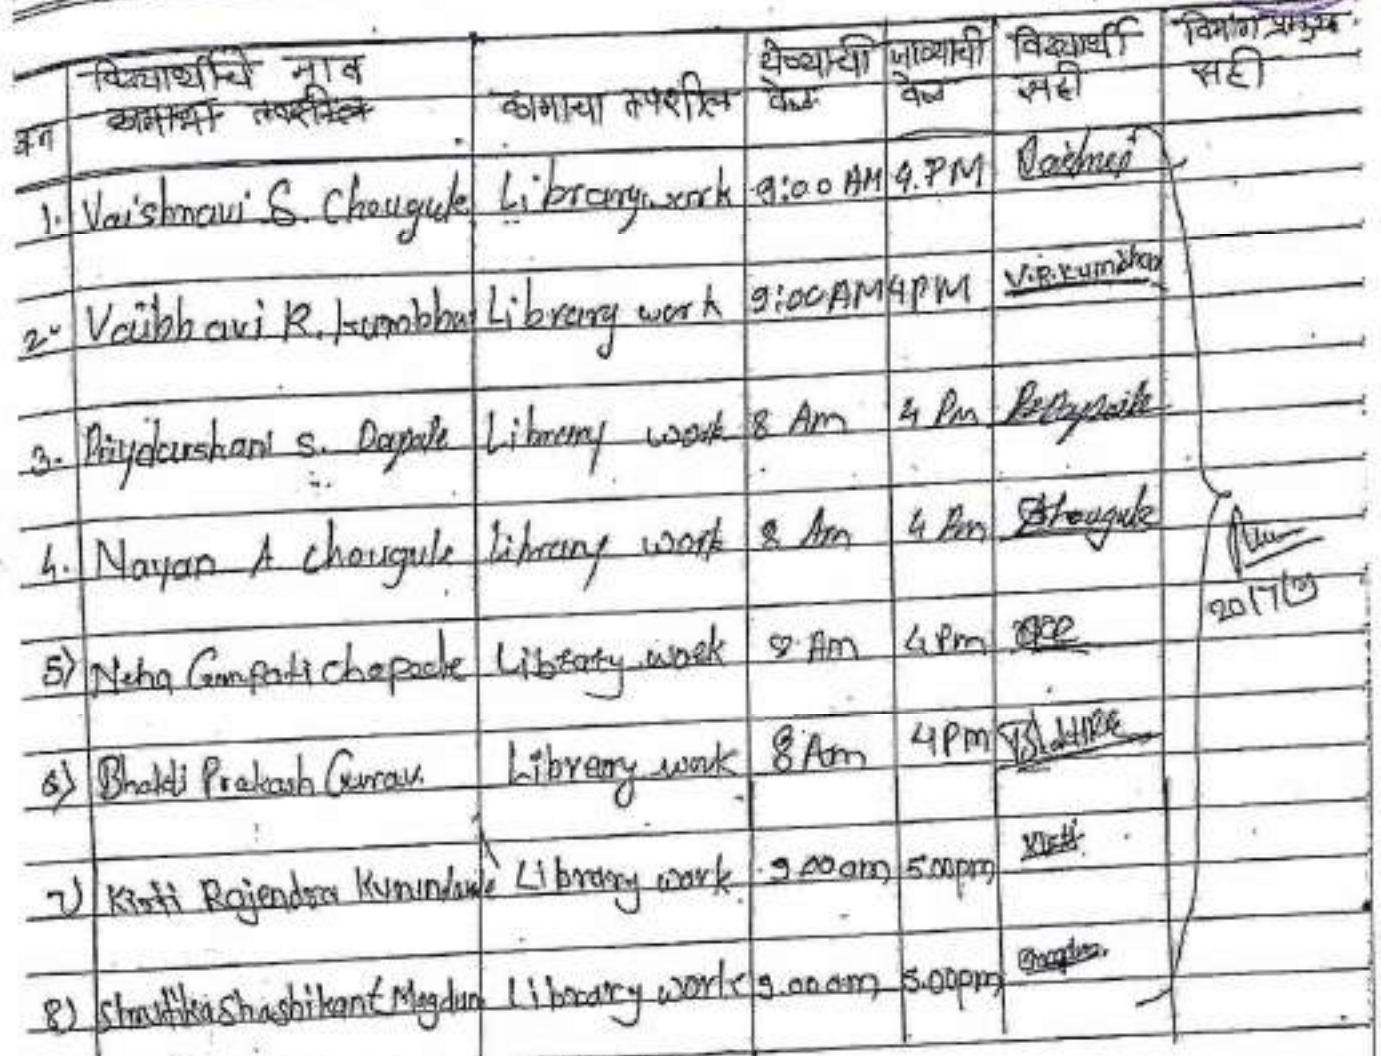 विद्यार्थीचे नाव कामाचा तपशील येण्याची वेळ जाण्याची वेळ विद्यार्थी सही विभाग प्रमुख सही
कामाचा तपशील
1. Vaishnavi S. Chougule Library work 9:00 AM 4.PM
2. Vaibhavi R. Kumbhar Library work 9:00AM 4PM V.R.Kumbhar
3. Priydarshani S. Dapale Library work 8 Am 4 Pm
4. Nayan A Chougule Library work 8 Am 4 Pm Chougule
5) Neha Ganpati Chopade Library work 8 Am 4 Pm
6) Bhakti Prakash Gurav Library work 8 Am 4 Pm
7) Kirti Rajendra Kurundwade Library work 9.00am 5.00pm
8) Shrutika Shashikant Magdum Library work 9.00am 5.00pm